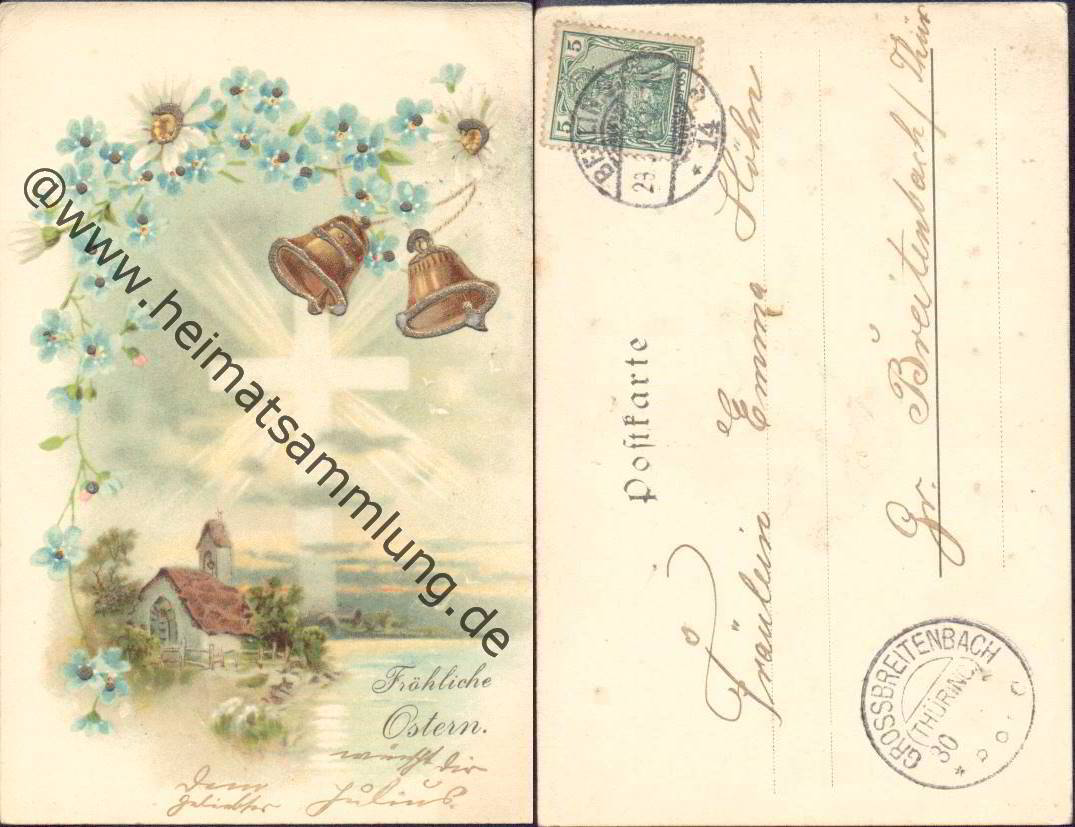 @www.heimatsammlung.de
Fröhliche
Ostern.
wünscht dir
Dein
geliebter Julius.
5
5
14
29.3
Postkarte
Fräulein Emma Höhn
Gr. Breitenbach / Thür
GROSSBREITENBACH
(THÜRINGEN)
30